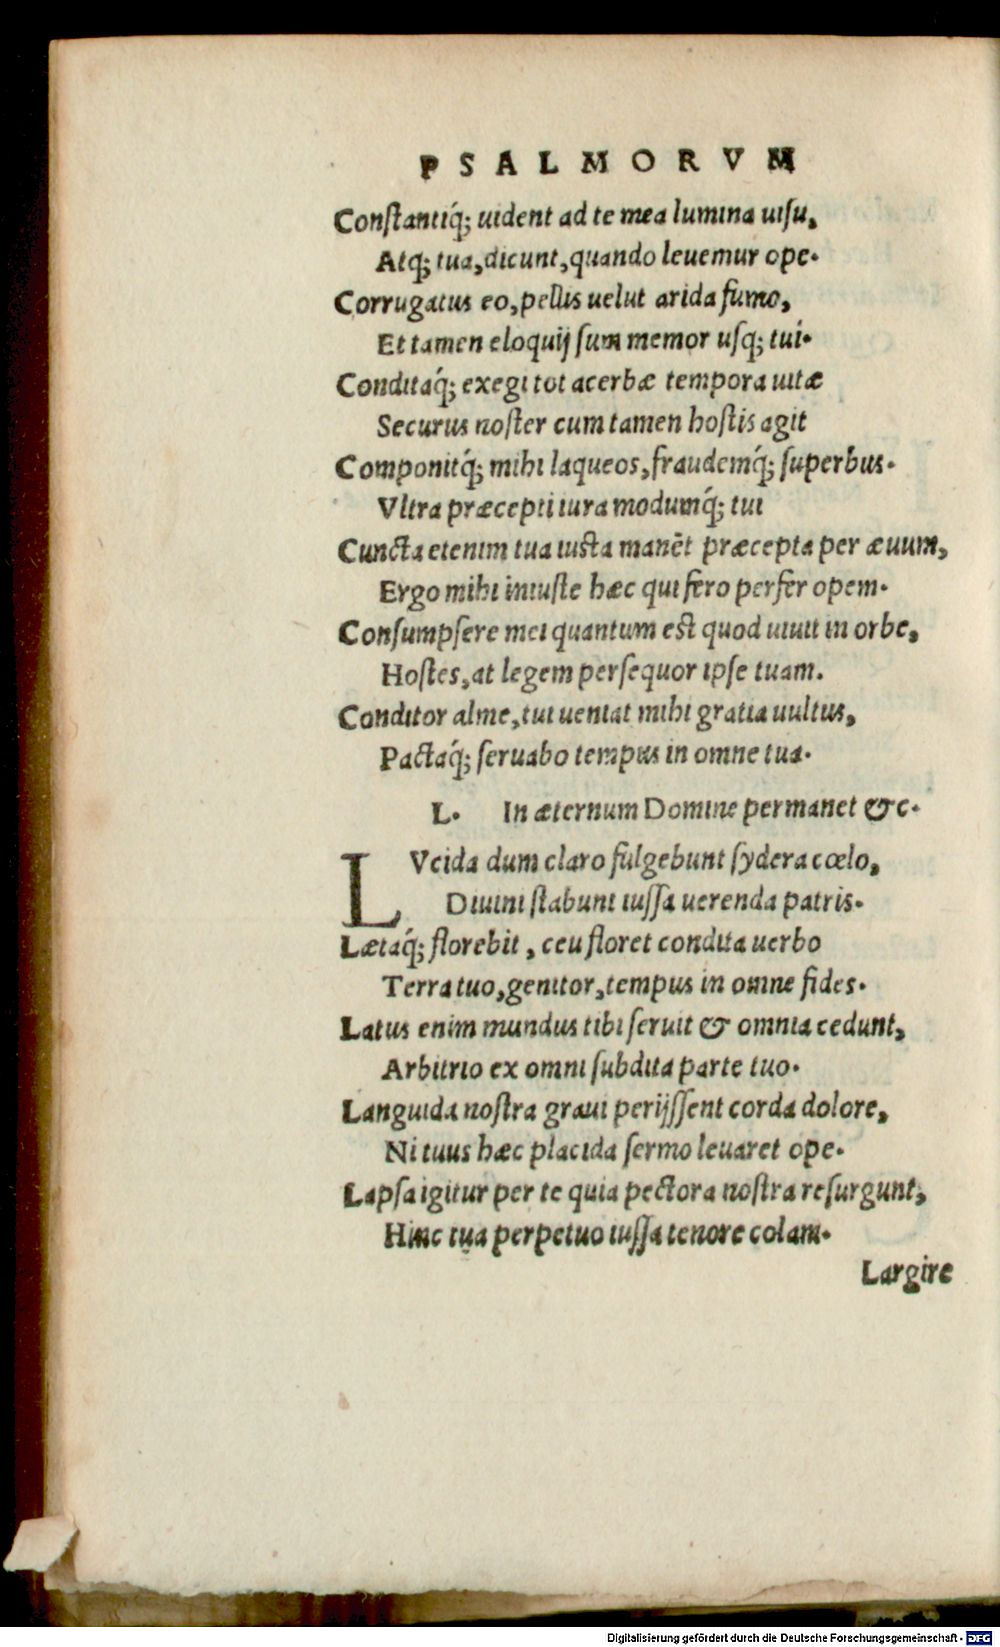 PSALMORVM
Constantiq́; uident ad te mea lumina uisu,
Atq; tua, dicunt, quando leuemur ope.
Corrugatus eo, pellis uelut arida fumo,
Et tamen eloquij sum memor usq; tui.
Conditaq́; exegi tot acerbæ tempora uitæ
Securus noster cum tamen hostis agit
Componitq́; mihi laqueos, fraudemq́; superbus.
Vltra præcepti iura modumq́; tui
Cuncta etenim tua iusta manēt præcepta per æuum,
Ergo mihi iniuste hæc qui fero perfer opem.
Consumpsere mei quantum est quod uiuit in orbe,
Hostes, at legem persequor ipse tuam.
Conditor alme, tui ueniat mihi gratia uultus,
Pactaq́; seruabo tempus in omne tua.
L. In æternum Domine permanet &c.
LVcida dum claro fulgebunt sydera cœlo,
Diuini stabunt iussa uerenda patris.
Lætaq́; florebit, ceu floret condita uerbo
Terra tuo, genitor, tempus in omne fides.
Latus enim mundus tibi seruit & omnia cedunt,
Arbitrio ex omni subdita parte tuo.
Languida nostra graui perijssent corda dolore,
Ni tuus hæc placida sermo leuaret ope.
Lapsa igitur per te quia pectora nostra resurgunt,
Hinc tua perpetuo iussa tenore colam.
Largire
Digitalisierung gefördert durch die Deutsche Forschungsgemeinschaft - DFG